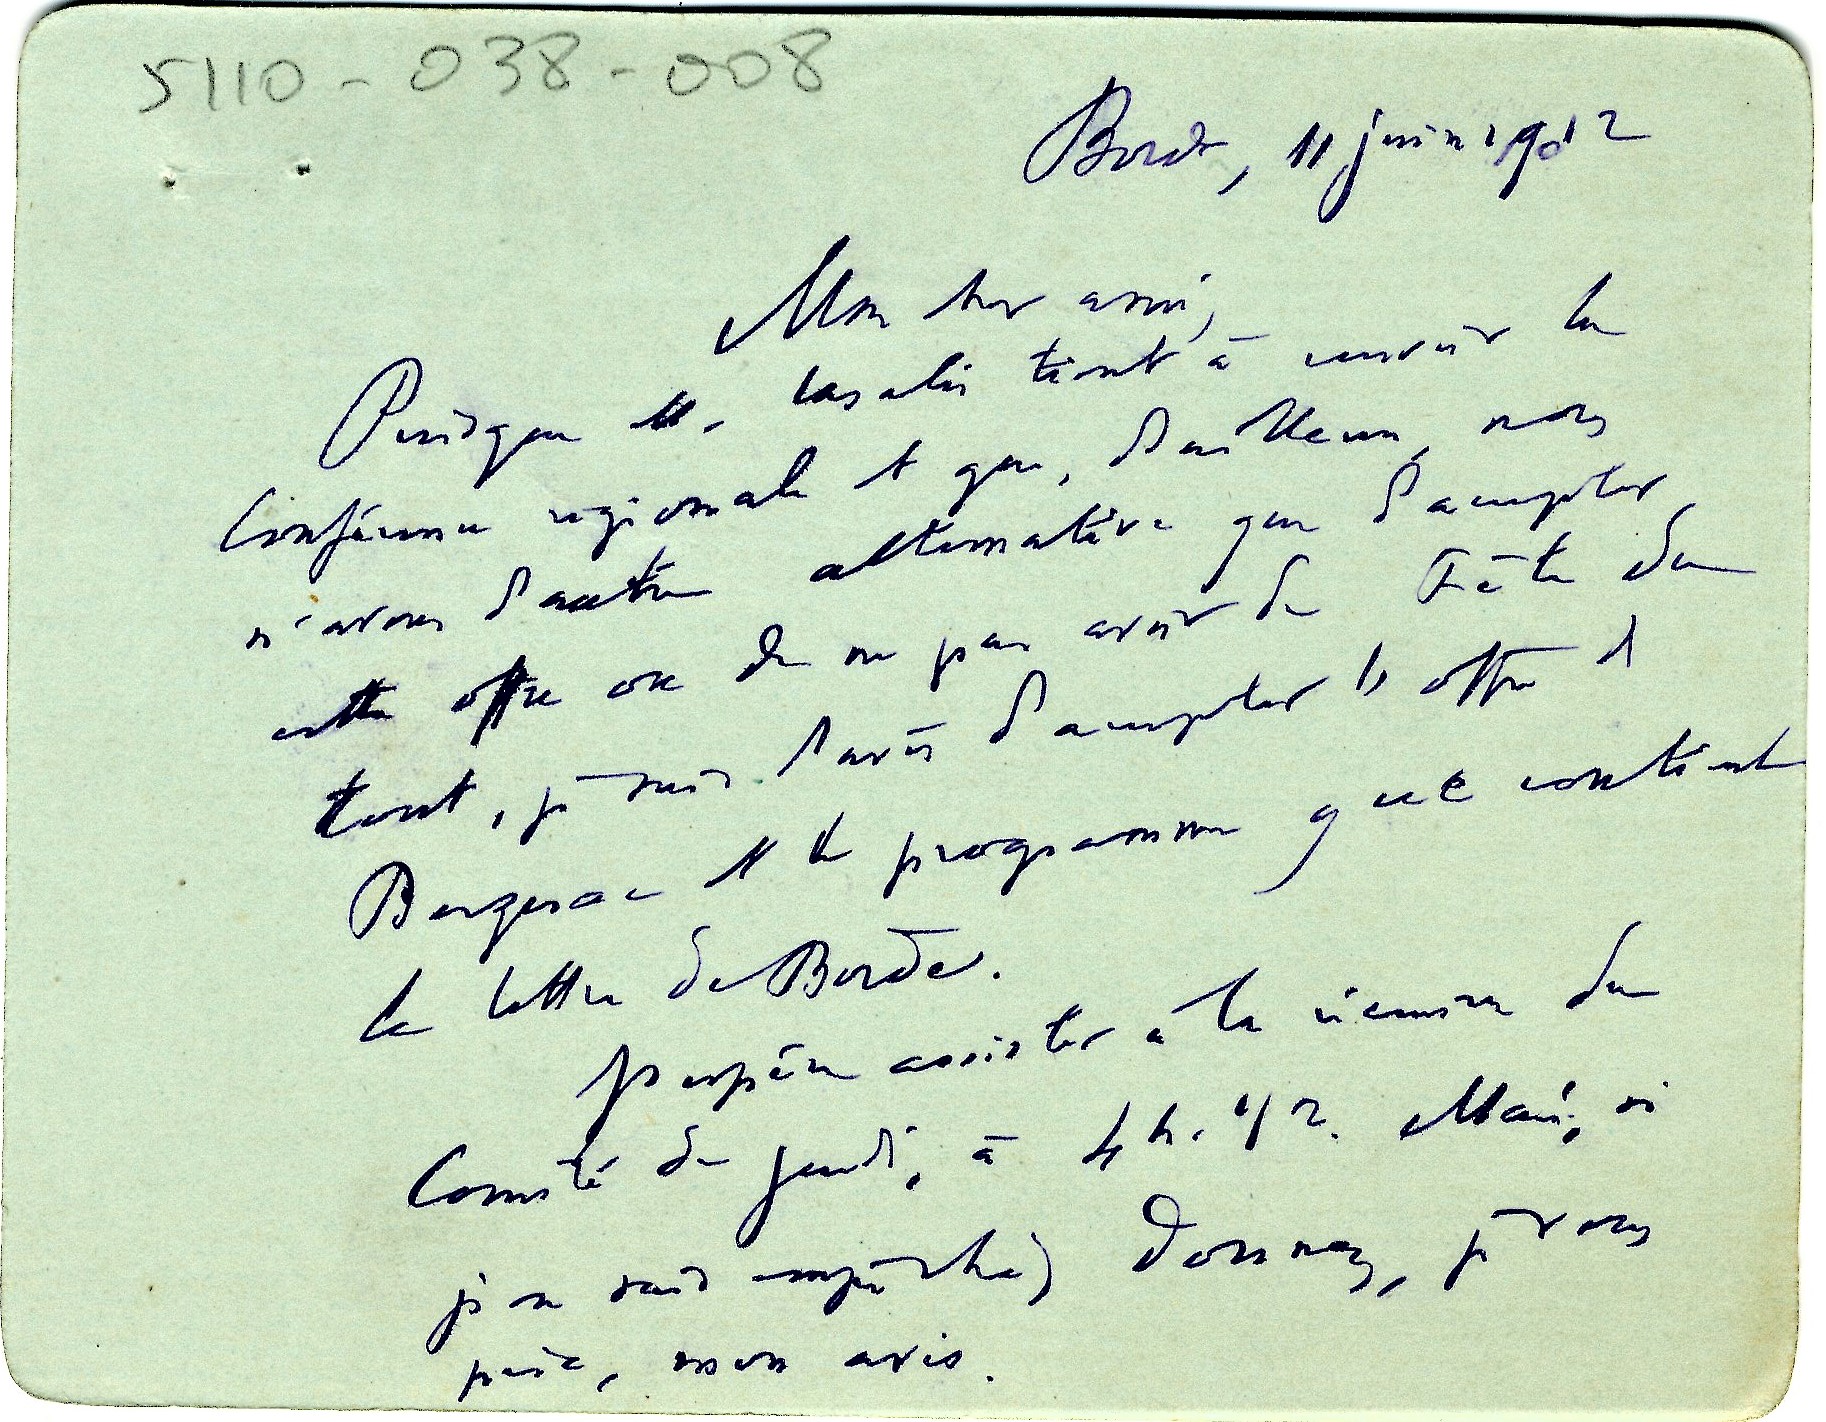 5110-038-008
Bordx, 11 juin 1912
Mon cher ami,
Puisque M. tient à ouvrir la
Conférence régionale et que, d'ailleurs, nous
n'avons d'autre alternative que d'accepter
cette offre ou de ne pas avoir de Fête du
tout, je suis d'avis d'accepter l'offre de
Bergerac et le programme que contient
la lettre de Borde.
J'espère assister à la réunion du
Comité de jeudi, à 4 h. 1/2. Mais, si
j'en suis empêché, donnez, je vous
prie, mon avis.